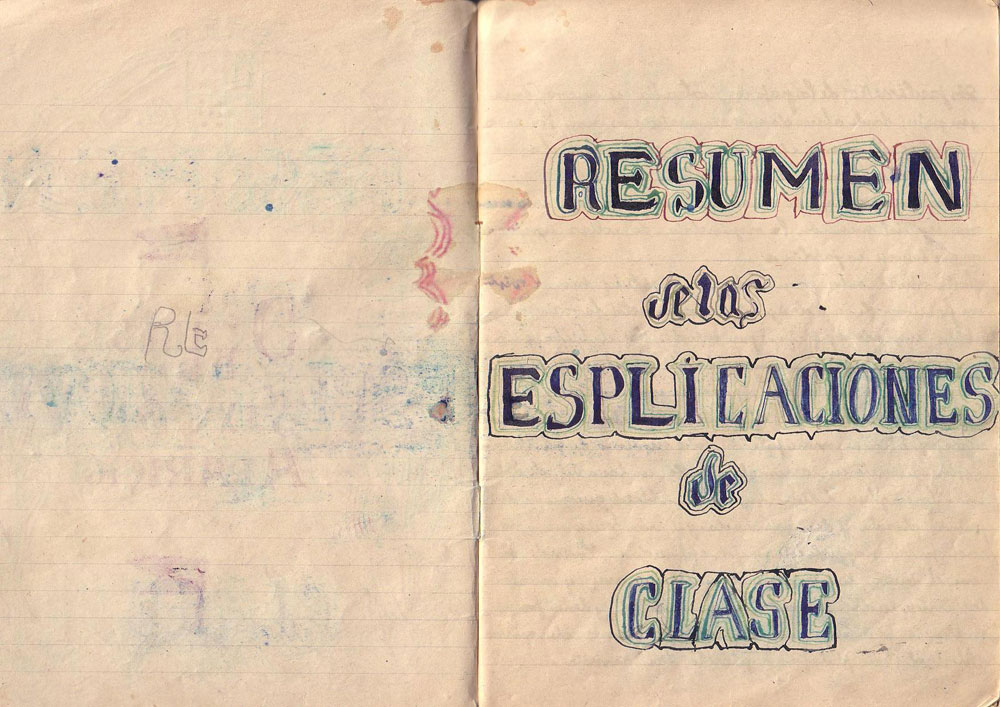 RE
RESUMEN
de las
ESPLICACIONES
de
CLASE